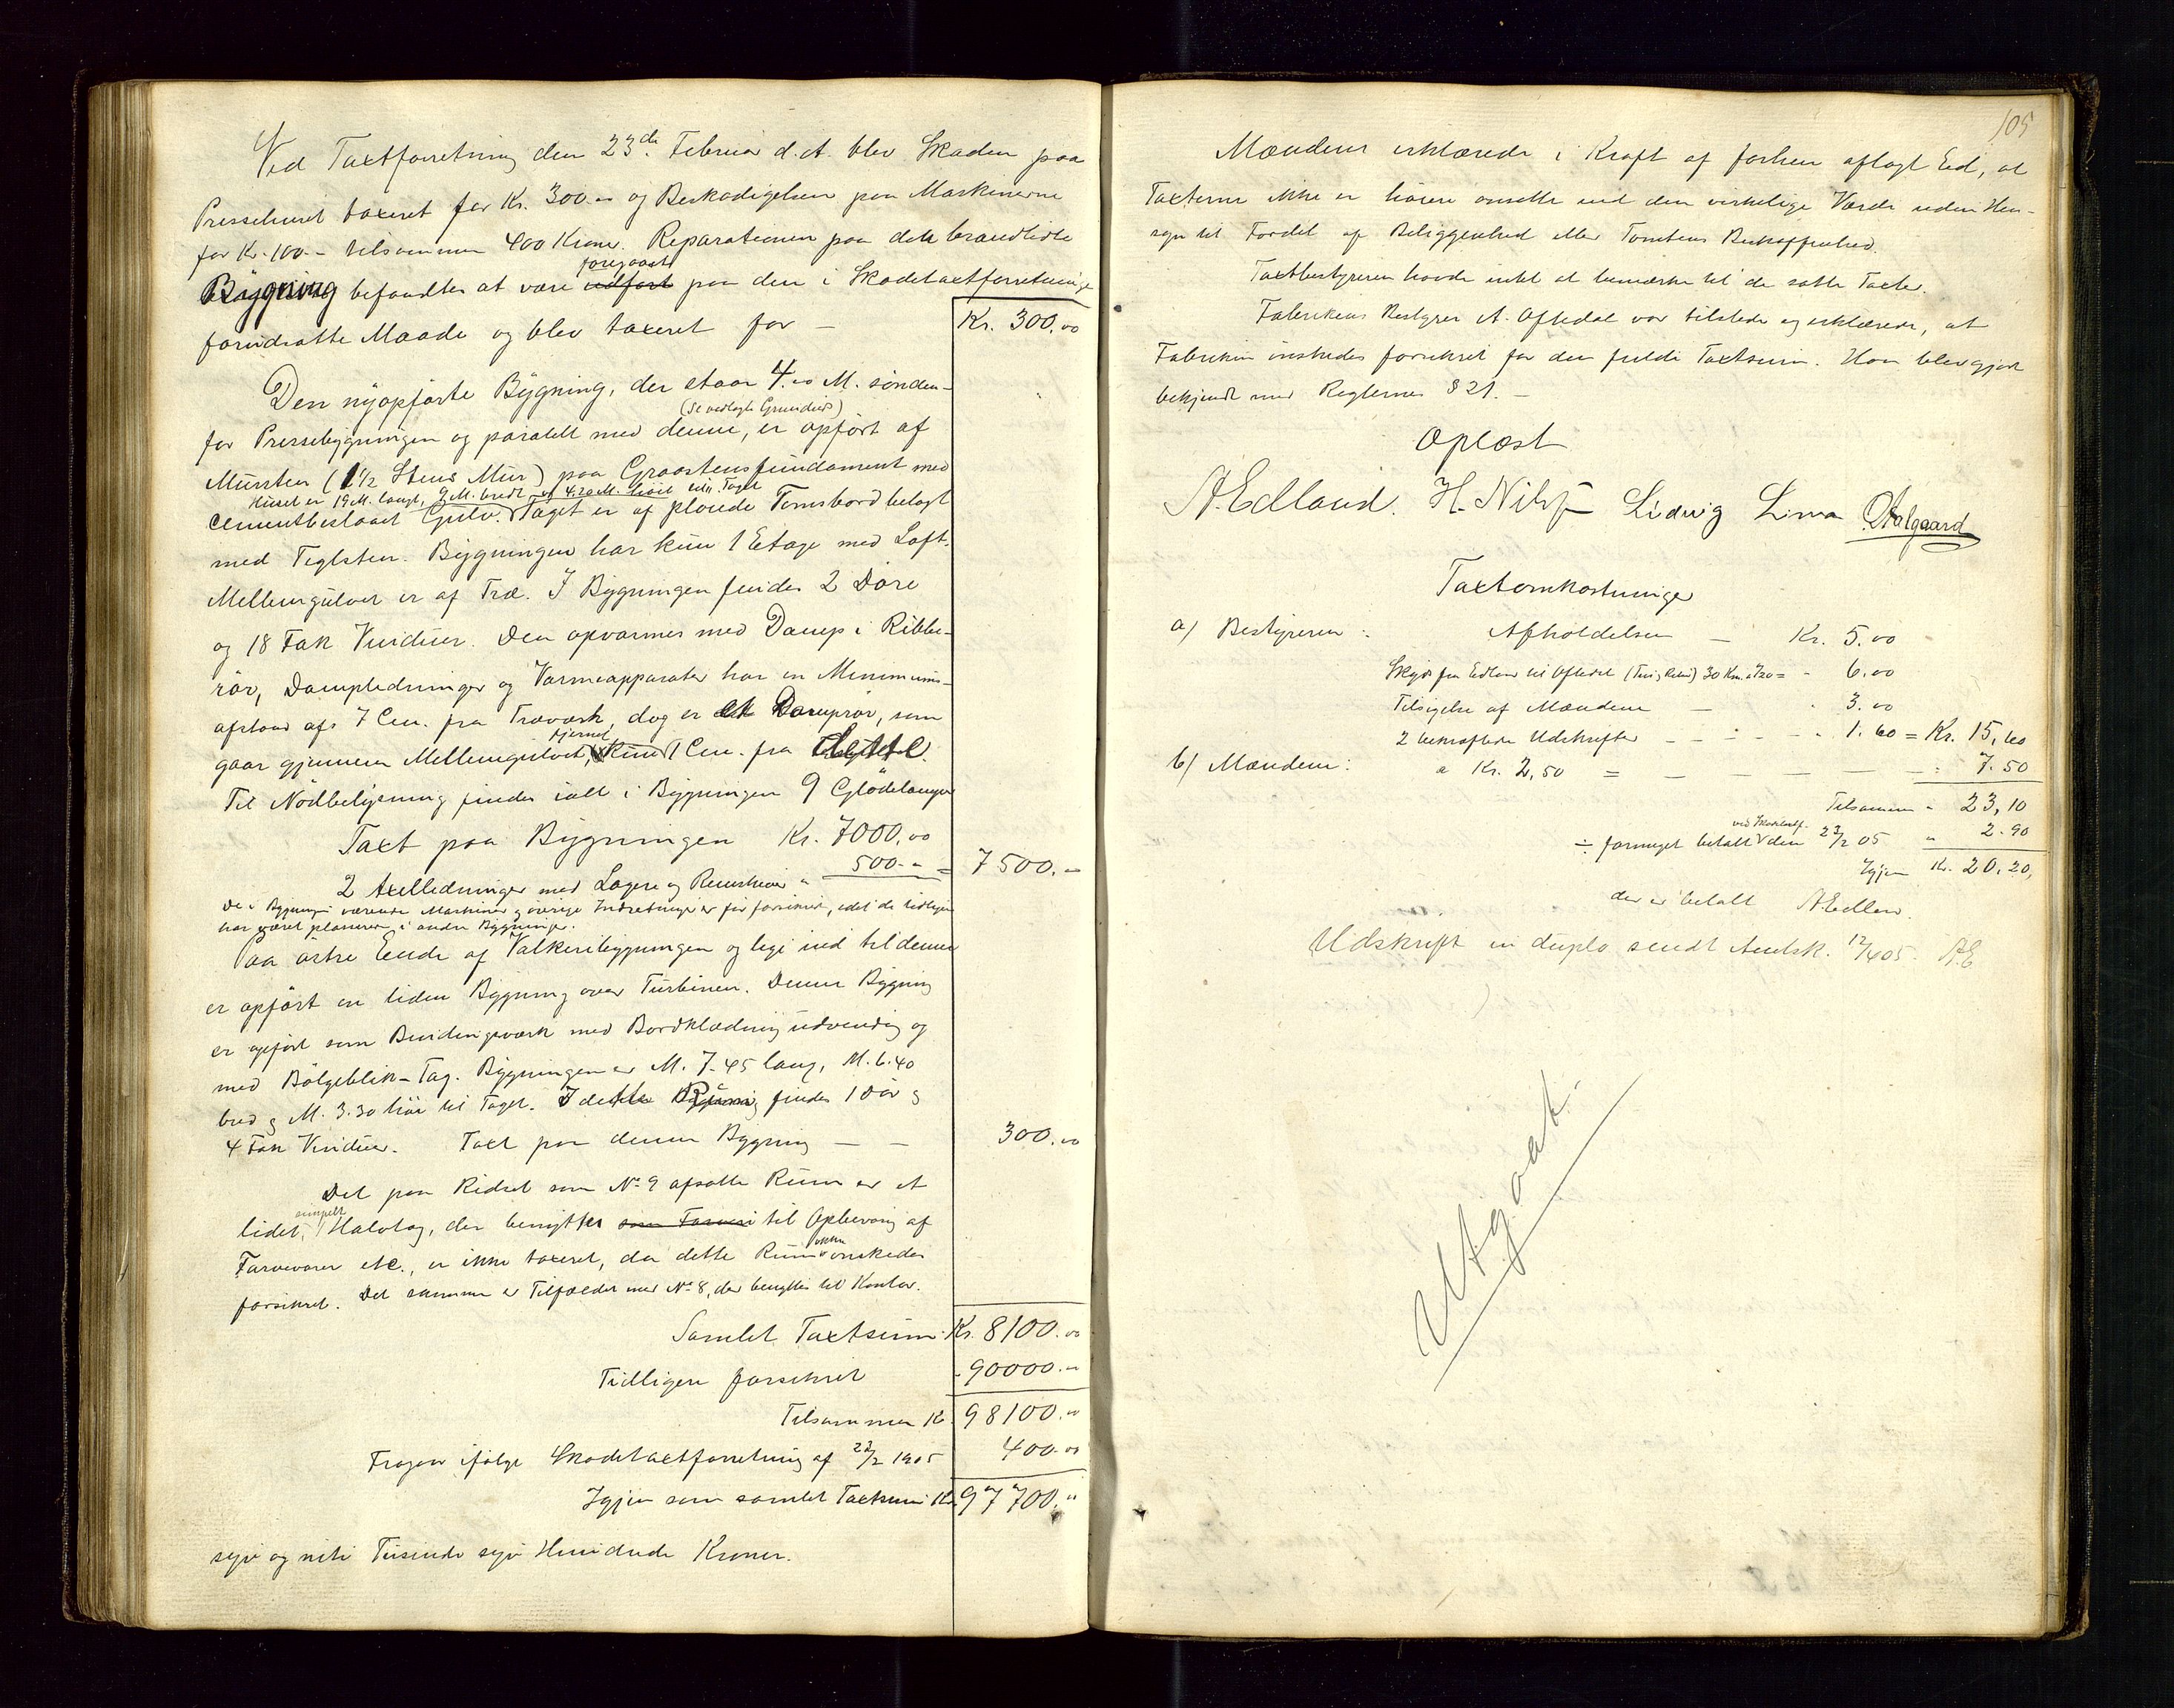 Ved Taxtforretning den 23de Februar d.A. blev Skaden paa
Pressehuset taxeret for Kr. 300.00 og Beskadigelsen paa Maskinerne
for Kr. 100.- tilsammen 400 Kroner. Reparationen paa den brandlidte
foregaaet
Bygning befandtes at være udført paa den i Skadetaxtforretningen
forudsatte Maade og blev taxeret for — Kr. 300.00
Den nyopførte Bygning, der staar 4.00 M. sønden-
(se vedlagte Grundrids)
for Pressebygningen og paralelt med denne, er opført af
Mursten (1 1/2 Stens Mur) paa Graastensfundament med
Huset er 19 M. langt, 9 M. bredt og 4.20 M. høit til Taget
cementbeslaaet Gulv. Taget er af pløiede Tomsbord belagt
med Teglsten. Bygningen har kun 1 Etage med Loft.
Mellemgulvet er af Træ. I Bygningen findes 2 Døre
og 18 Fak Vinduer. Den opvarmes med Damp i Ribbe-
rør, Dampledninger og Varmeapparater har en Minimums-
afstand af 7 Cm. fra Træværk, dog er et Damprør, som
fjernet
gaar gjennem Mellemgulvet, kun 1 Cm. fra dette.
Til Nødbelysning findes ialt i Bygningen 9 Glødelamper
Taxt paa Bygningen Kr. 7000.00
2 Axelledninger med Lagere og Remskiver " 500.- = 7500.-
De i Bygningen værende Maskiner og øvrige Indretninger er før forsikret, idet de tidligere
har været placeret i andre Bygninger.
Paa østre Ende af Valkeribygningen og lige ind til denne
er opført en liden Bygning over Turbinen. Denne Bygning
er opført som Bindingsværk med Bordklædning udvendig og
med Bølgeblik-Tag. Bygningen er M. 7.45 lang, M. 6.40
bred og M. 3.30 høi til Taget. I dette Rum findes 1 Dør og
4 Fak Vinduer. Taxt paa denne Bygning — — 300.00
Det paa Ridset som No 9 afsatte Rum er et
simpelt
lidet, Halvtag, der benyttes som Farveri til Opbevaring af
ikke
Farvevarer etc., er ikke taxeret, da dette Rum ønskedes
forsikret. Det samme er Tilfældet med No 8, der benyttes til Kontor.
Samlet Taxtsum Kr. 8100.00
Tidligere forsikret - 90000.-
Tilsammen Kr. 98100.00
Fragaar ifølge Skadetaxtforretning af 23/2 1905 400.00
Igjen som samlet Taxtsum Kr. 97700."
syv og niti Tusinde syv Hundrede Kroner.
105
Mændene erklærede i Kraft af forhen aflagt Eed, at
Taxterne ikke er høiere ansatte end den virkelige Værdi uden Hen-
syn til Fordel af Beliggenhed eller Tomtens Beskaffenhed.
Taxtbestyreren havde intet at bemærke til de satte Taxter.
Fabrikens Bestyrer A. Oftedal var tilstede og erklærede, at
Fabriken ønskedes forsikret for den fulde Taxtsum. Han blev gjort
bekjendt med Reglernes § 21. —
Oplæst
A. Edland. H. Nilsen Ludvig Lima O Aalgaard
Taxtomkostninger
a) Bestyreren: Afholdelsen — Kr. 5.00
Skyds fra Edland til Oftedal (Tur og Retur) 30 Km. a /20 = - 6.00
Tilsigelse af Mændene — - 3.00
2 bekræftede Udskrifter — - 1.60 = Kr. 15,60
b) Mændene: a Kr. 2,50 = — — — — : 7.50
Tilsammen " 23,10
ved Skadetaxtf.
÷ forrmeget betalt den 23/2 05 " 2.90
Igjen Kr. 20.20,
der er betalt A Edland.
Udskrift in duplo sendt Amtsk. 12/4 05. AE
Utgaat.